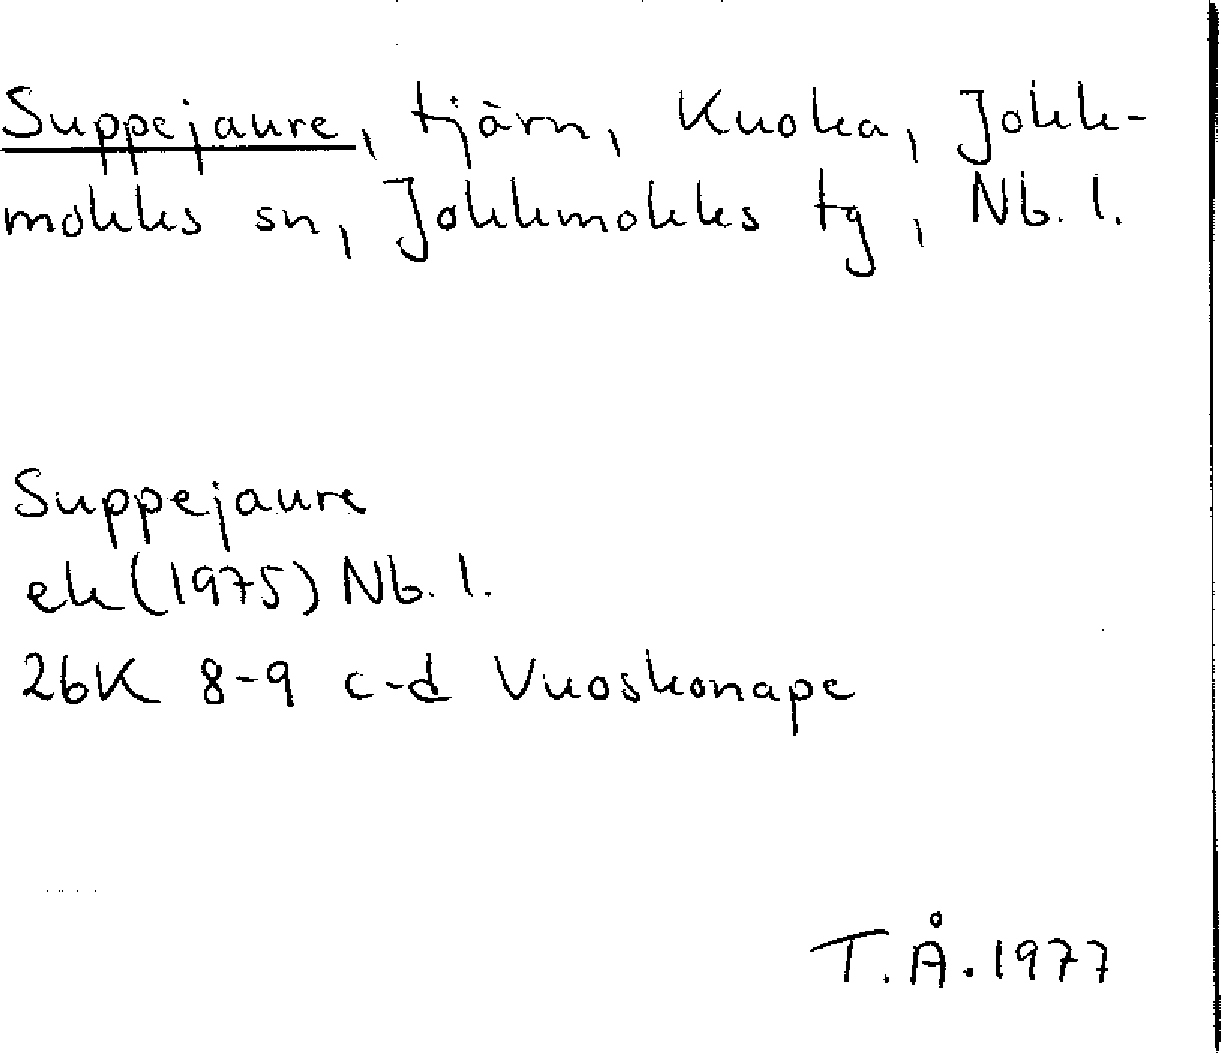 Suppejaure, tjärn, Kuoka, Jokk-
mokks sn, Jokkmokks tg, Nb. l.
Suppejaure
ek (1975) Nb. l.
26K 8-9 c-d Vuoskonape
T.Å. 1977